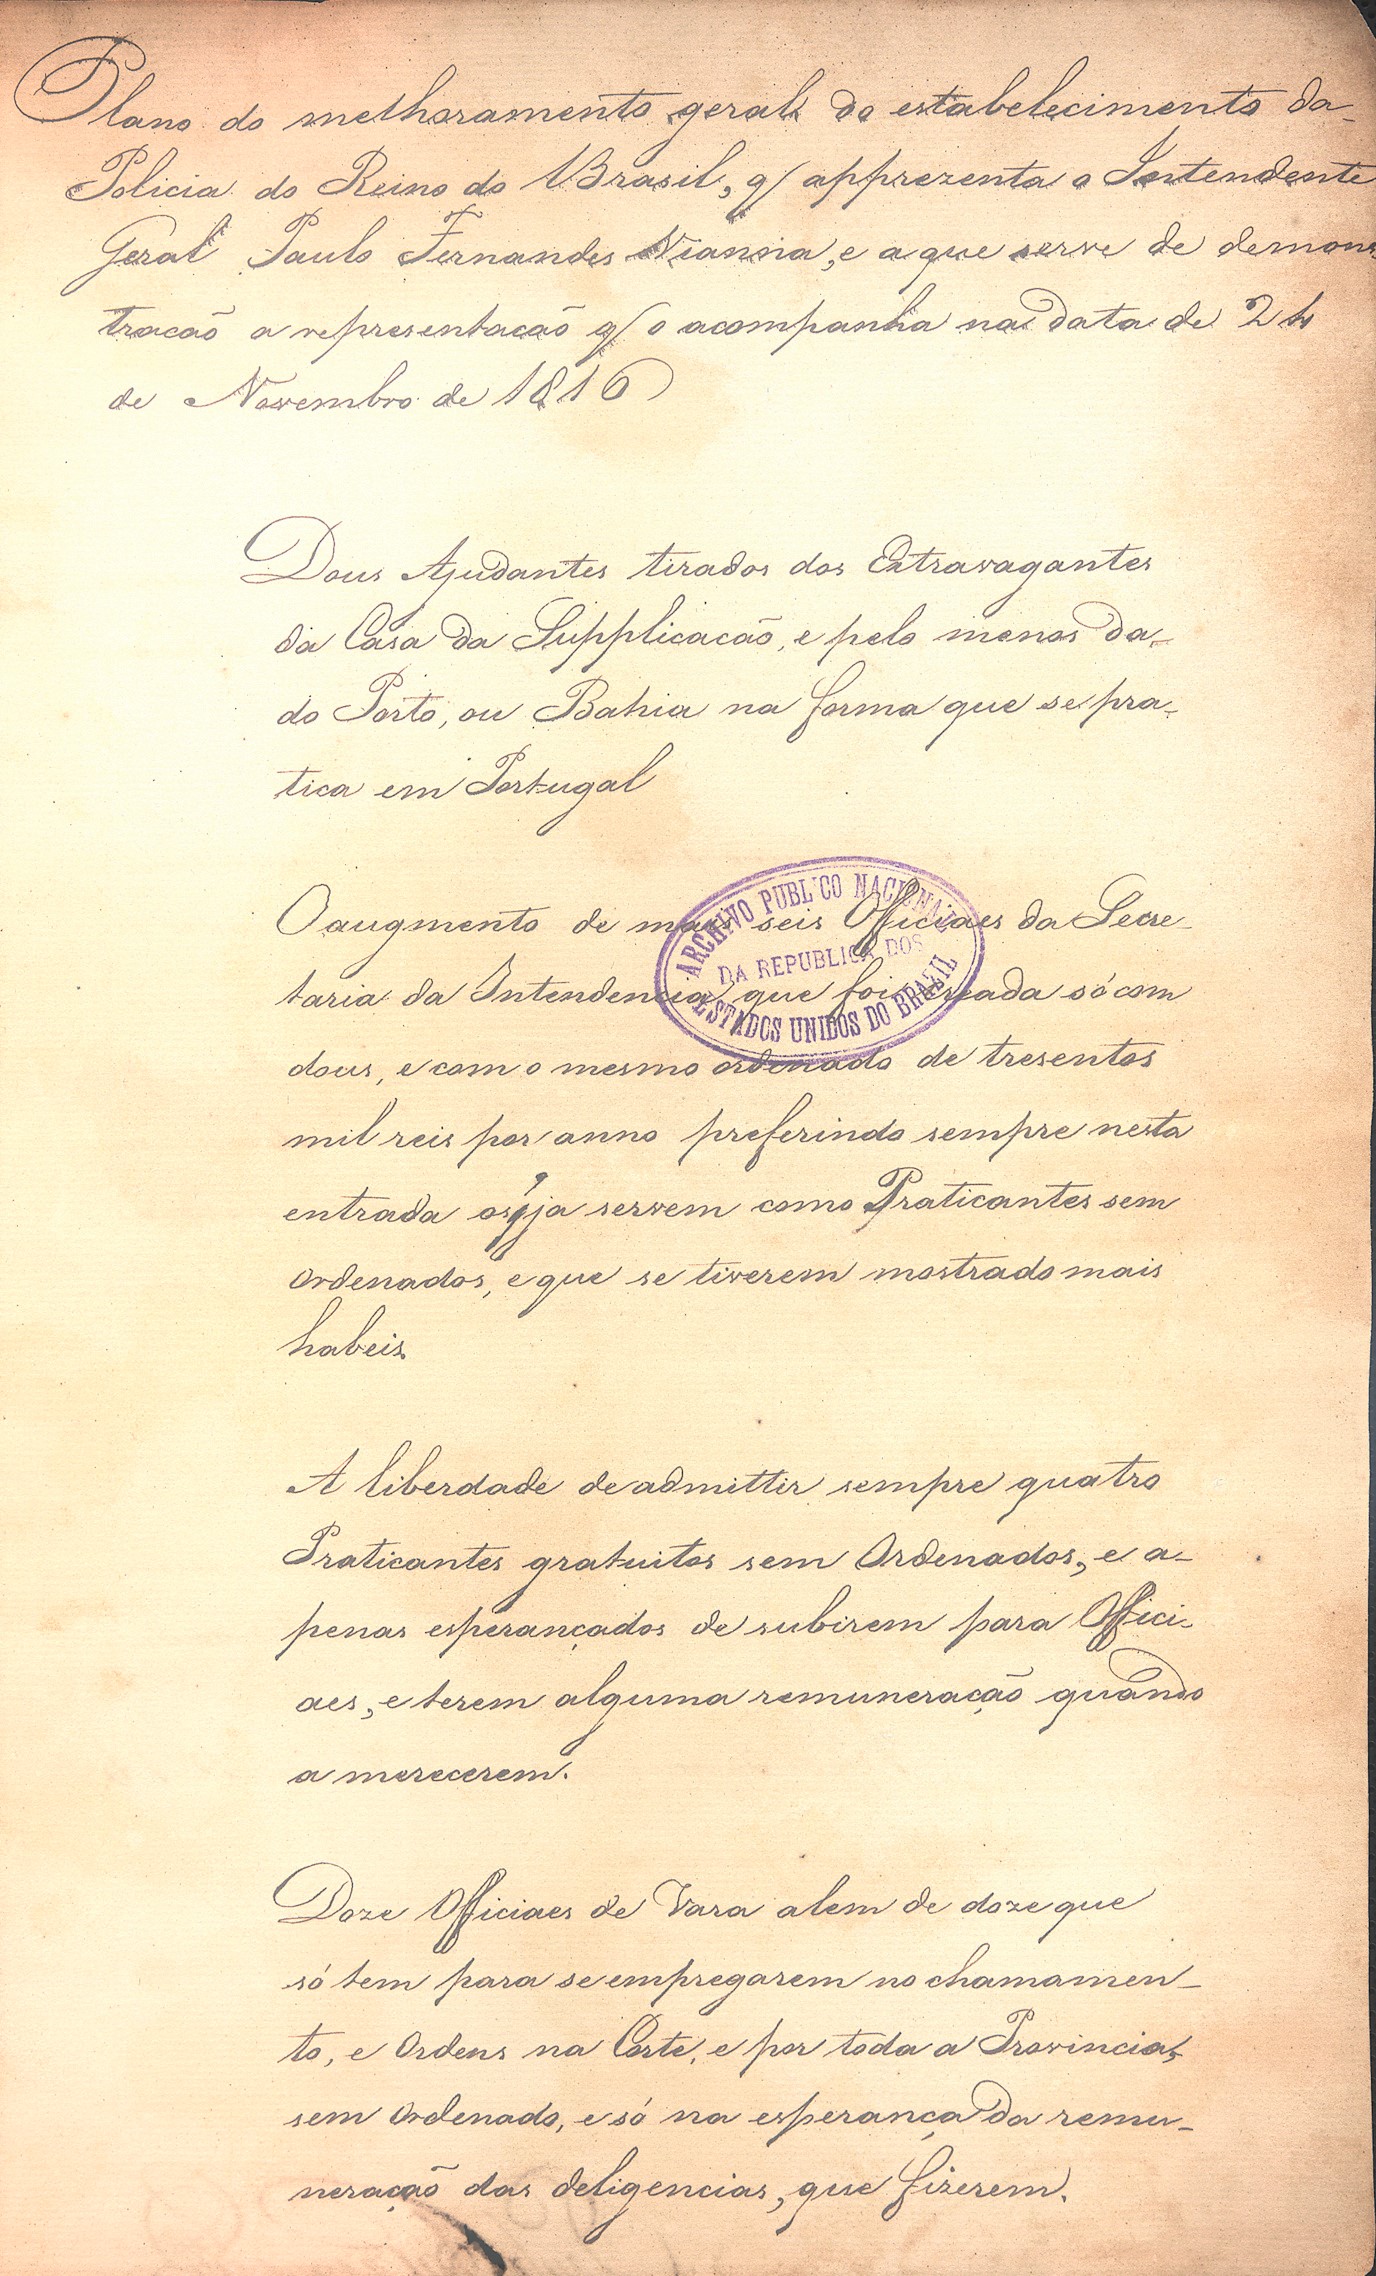 Plano do melhoramento geral do estabelecimento da
Policia do Reino do Brasil, q/ apprezenta o Intendente
Geral Paulo Fernandes Vianna, e a que serve de demons
tracão a representacão q/ o acompanha na data de 24
de Novembro de 1816
Dous Ajudantes tirados dos Extravagantes
da Casa da Supplicacão, e pelo menos da
do Porto, ou Bahia na forma que se pra-
tica em Portugal
O augmento de mais seis Officiaes da Secre-
taria da Intendencia que foi creada só com
dous, e com o mesmo ordenado de tresentos
mil reis por anno preferindo sempre nesta
entrada os q ja servem como Praticantes sem
ordenados, e que se tiverem mostrado mais
habeis.
A liberdade de admittir sempre quatro
Praticantes gratuitos sem Ordenados, e a-
penas esperançados de subirem para Offici-
aes, e terem alguma remuneração quando
a merecerem.
Doze Officiaes de Vara alem de doze que
só tem para se empregarem no chamamen-
to, e Ordens na Corte, e por toda a Provincia,
sem Ordenado, e só na esperança da remu-
neração das deligencias, que fizerem.
ARCHIVO PUBLICO NACIONAL
DA REPUBLICA DOS
ESTADOS UNIDOS DO BRAZIL